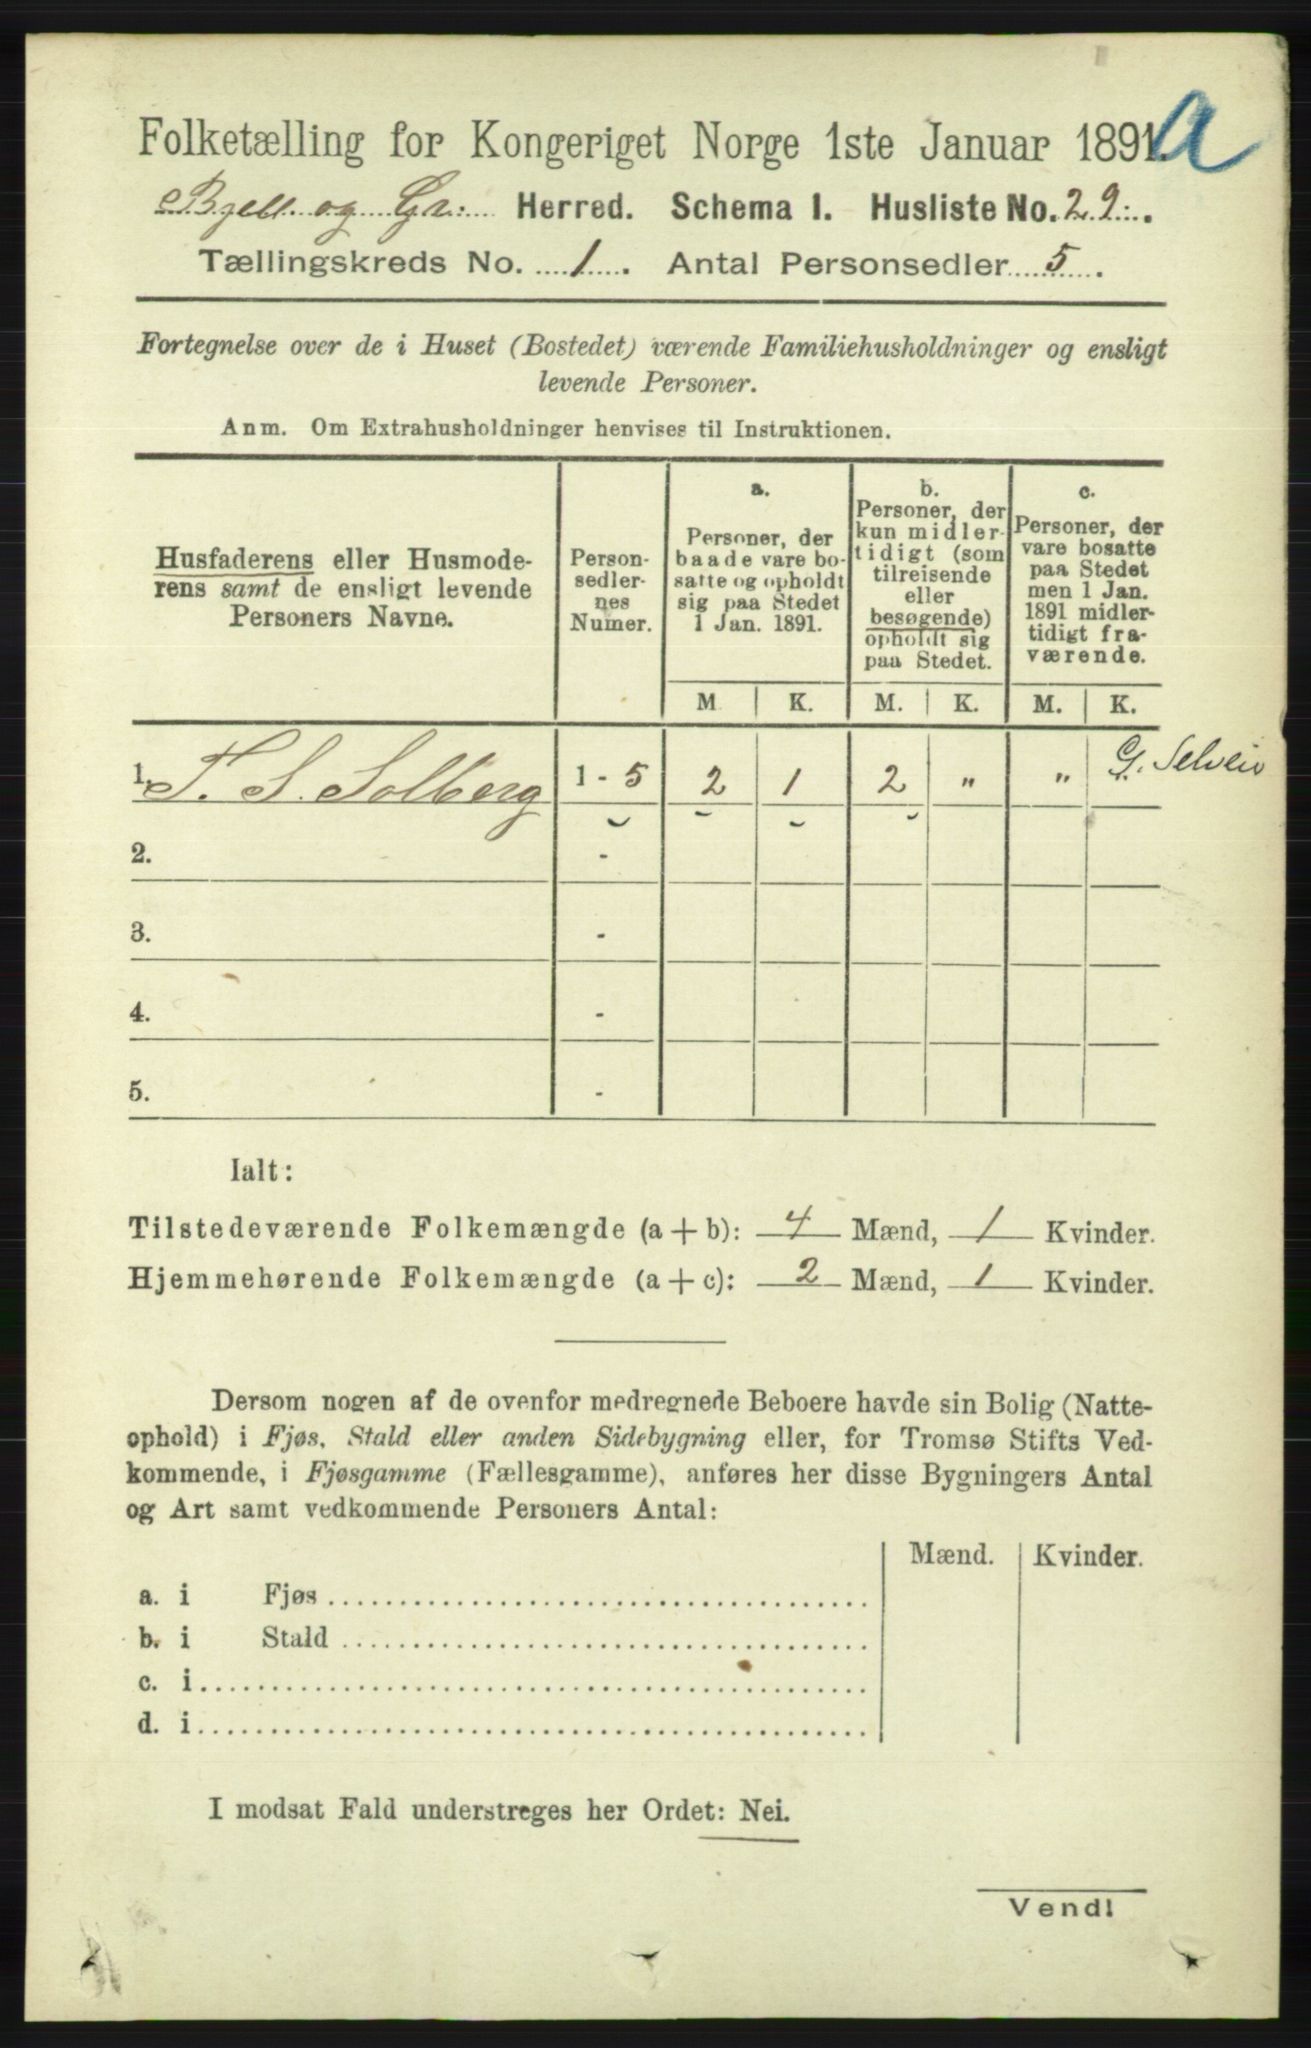 Folketælling for Kongeriget Norge 1ste Januar 1891. a
Bjell. og Gr: Herred. Schema I. Husliste No. 29.
Tællingskreds No. 1. Antal Personsedler 5.
Fortegnelse over de i Huset (Bostedet) værende Familiehusholdninger og ensligt
levende Personer.
Anm. Om Extrahusholdninger henvises til Instruktionen.
Husfaderens eller Husmode-
rens samt de ensligt levende
Personers Navne.
Person-
sedler-
nes
Numer.
a.
Personer, der
baade vare bo-
satte og opholdt
sig paa Stedet
1 Jan. 1891.
b.
Personer, der
kun midler-
tidigt (som
tilreisende
eller
besøgende)
opholdt sig
paa Stedet.
c.
Personer, der
vare bosatte
paa Stedet
men 1 Jan.
1891 midler-
tidigt fra-
værende.
M K. M. K. M. K.
1. T. S. Solberg 1 - 5 2 1 2 " " G.
2. -
3. -
4. -
5. -
Ialt:
Tilstedeværende Folkemængde (a + b): 4 Mænd, 1 Kvinder.
Hjemmehørende Folkemængde (a + c): 2 Mænd, 1 Kvinder.
Dersom nogen af de ovenfor medregnede Beboere havde sin Bolig (Natte-
ophold) i Fjøs, Stald eller anden Sidebygning eller, for Tromsø Stifts Ved-
kommende, i Fjøsgamme (Fællesgamme), anføres her disse Bygningers Antal
og Art samt vedkommende Personers Antal:
Mænd. Kvinder.
a. i Fjøs
b. i Stald
c. i
d. i
I modsat Fald understreges her Ordet: Nei.
Vend!